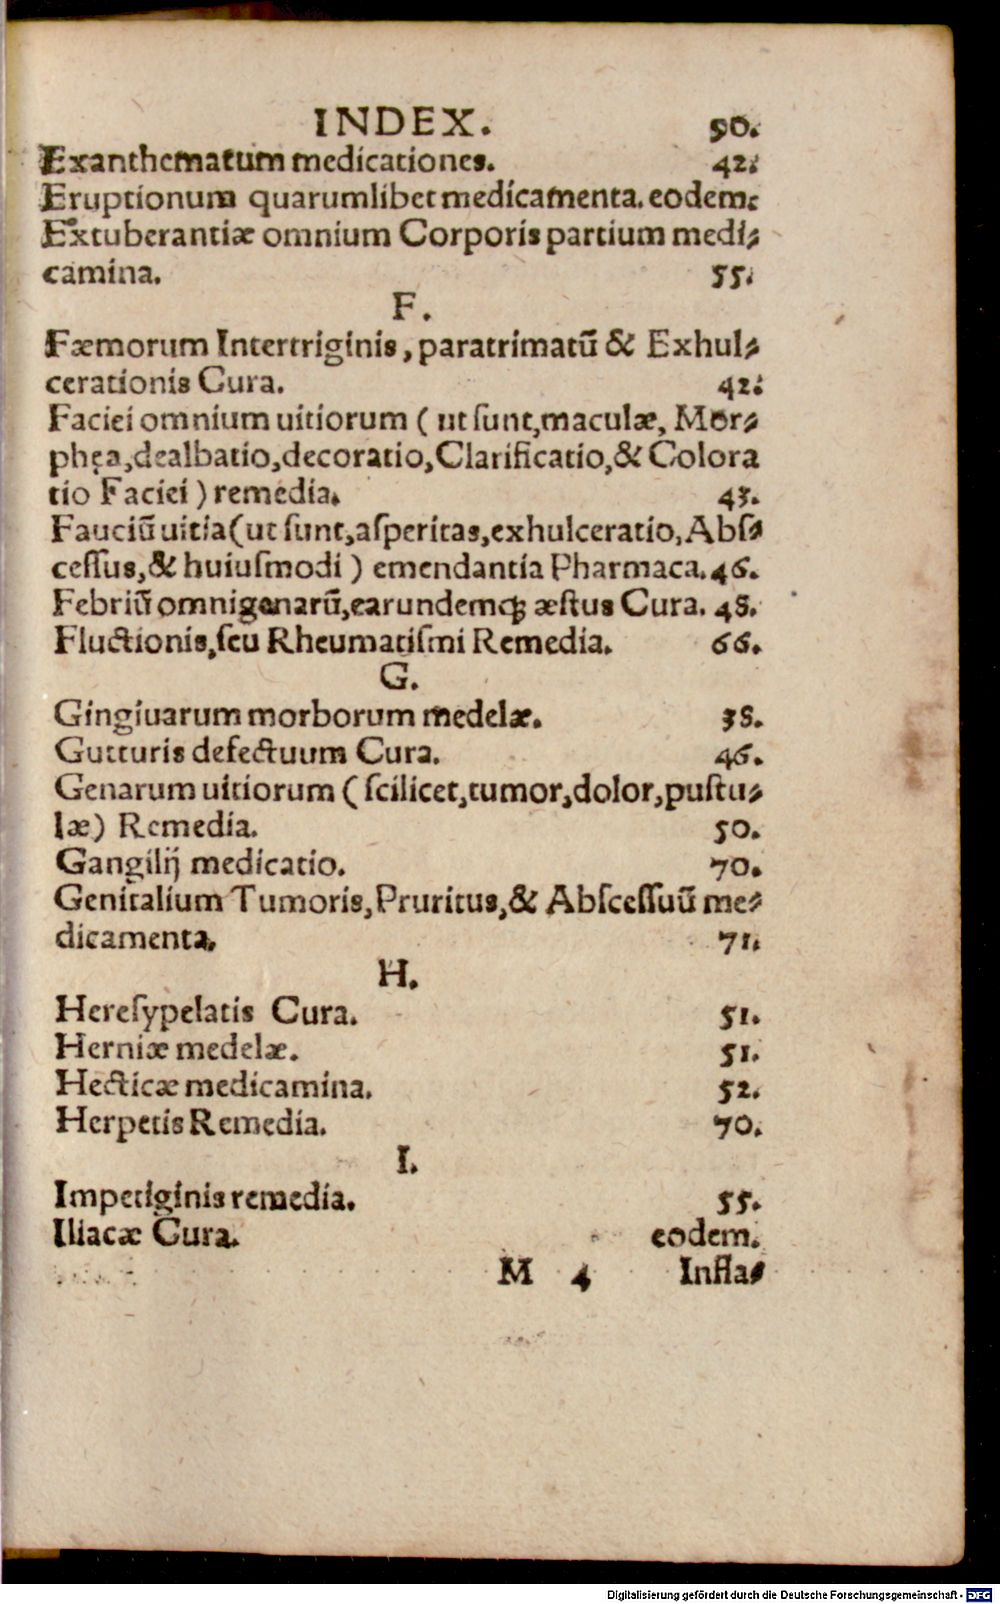 INDEX. 50.
Exanthematum medicationes. 42.
Eruptionum quarumlibet medicamenta. eodem.
Extuberantiæ omnium Corporis partium medi⸗
camina. 55.
F.
Fæmorum Intertriginis, paratrimatū & Exhul⸗
cerationis Cura. 42.
Faciei omnium uitiorum ( ut ſunt, maculæ, Mor⸗
phęa, dealbatio, decoratio, Clarificatio, & Colora
tio Faciei ) remedia. 43.
Fauciū uitia (ut ſunt, aſperitas, exhulceratio, Abſ⸗
ceſſus, & huiuſmodi ) emendantia Pharmaca. 46.
Febriū omnigenarū, earundemꝗ; æſtus Cura. 48.
Fluctionis, ſeu Rheumatiſmi Remedia. 66.
G.
Gingiuarum morborum medelæ. 38.
Gutturis defectuum Cura. 46.
Genarum uitiorum ( ſcilicet, tumor, dolor, puſtu⸗
læ) Remedia. 50.
Gangilij medicatio. 70.
Genitalium Tumoris, Pruritus, & Abſceſſuū me⸗
dicamenta. 71.
H.
Hereſypelatis Cura. 51.
Herniæ medelæ. 51.
Hecticæ medicamina. 52.
Herpetis Remedia. 70.
I.
Impetiginis remedia. 55.
Iliacæ Cura. eodem.
M 4 Infla⸗
Digitalisierung gefördert durch die Deutsche Forschungsgemeinschaft - DFG